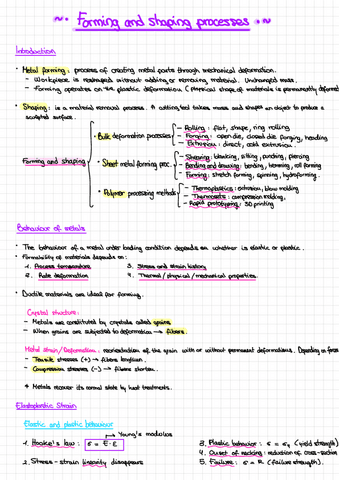 ~• Forming and shaping processes •~
Introduction
• Metal forming: process of creating metal parts through mechanical deformation.
- Workpiece is reshaped without adding or removing material. Unchanged mass.
- Forming operates on the plastic deformation (physical shape of materials is permanently deformed
• Shaping: is a material removal process. A cutting tool takes mass and shapes an object to produce a
sculpted surface.
Forming and shaping
• Bulk deformation processes
- Rolling: flat, shape, ring rolling
- Forging: open die, closed die forging, heading
- Extrusion: direct, cold extrusion.
• Sheet metal forming proc.
- Shearing: blanking, slitting, punching, piercing
- Bending and drawing: bending, hemming, roll forming
- Forming: stretch forming, spinning, hydroforming.
• Polymer processing methods
- Thermoplastics: extrusion, blow molding
- Thermosets: compression molding,
- Rapid prototyping: 3D printing
Behaviour of metals
• The behaviour of a metal under loading condition depends on whether is elastic or plastic.
• Formability of materials depends on:
1. Process temperature 3. Stress and strain history
2. Rate deformation 4. Thermal/physical/mechanical properties.
• Ductile materials are ideal for forming.
Crystal structure:
- Metals are constituted by crystals called grains
- When grains are subjected to deformation → fibers.
Metal strain/Deformation: reorientation of the grain with or without permanent deformations. Depending on
- Tensile stresses (+) → fibers lengthen.
- Compression stresses (-) → fibers shorten.
* Metals recover its normal state by heat treatments.
Elastoplastic Strain
Elastic and plastic behaviour
Young's modulus
1. Hooke's law: σ = E·ε 3. Plastic behavior: σ = σy (yield strength)
2. Stress-strain linearity disappears 4. Onset of necking: reduction of cross-section
5. Failure: σ = R (failure strength).